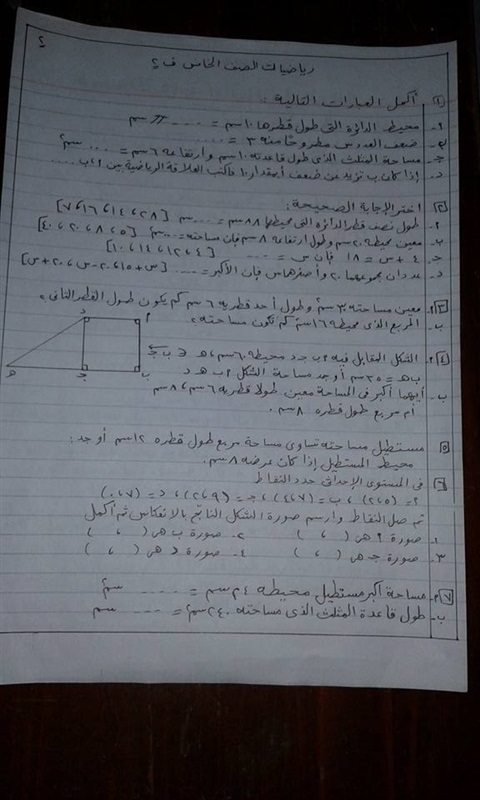 ٤
رياضيات الصف الخامس ف٢
١ أكمل العبارات التالية :
٢- محيط الدائرة التى طول قطرها ١٠سم = .... π سم
ب- ضعف العدد س مطروحًا منه ٣ = ......
ج- مساحة المثلث الذى طول قاعدته ١٠سم وارتفاعه ٦سم = .... سم٢
د- إذا كان ب تزيد عن ضعف أ بمقدار ١٠ فاكتب العلاقة الرياضية بين أ ، ب ....
٢ اختر الإجابة الصحيحة :
٢- طول نصف قطر الدائرة التى محيطها ٨٨سم = .... سم [٢٨ ، ١٤ ، ١٦ ، ٧]
ب- معين محيطه ٢٠سم وطول ارتفاعه ٨سم فإن مساحته .... سم٢ [٢٥ ، ٦٨ ، ٢٠ ، ٤٠]
ج- ٤ + س = ١٨ فإن س = .... [٤ ، ١٢ ، ١٤ ، ١٠]
د- عددان مجموعهما ٢٠ وأصغرهما س فإن الأكبر = ....
٣ ٢- معين مساحته ٣٠سم٢ وطول أحد قطريه ٦سم كم يكون طول القطر الثانى ؟
ب- المربع الذى محيطه ١٦سم كم تكون مساحته ؟
٤ ٢- الشكل المقابل فيه ٢ ب جـ د محيطه ٦٠سم ، هـ ∈ ب جـ
ب هـ = ٣٥سم أوجد مساحة الشكل ٢ ب هـ د
ب- أيهما أكبر فى المساحة معين طولا قطريه ٦سم ، ٨سم
أم مربع طول قطره ٨سم .
د ٢
هـ جـ ب
٥ مستطيل مساحته تساوى مساحة مربع طول قطره ١٢سم أوجد :
محيط المستطيل إذا كان عرضه ٨سم .
٦ فى المستوى الإحداثى حدد النقاط
٢ = (٢،٥) ، ب = (٤،٧) ، جـ = (٢،٩) ، د = (٠،٧)
ثم صل النقاط وارسم صورة الشكل الناتج بالانعكاس ثم أكمل
١- صورة ٢ هى ( ، ) ٢- صورة ب هى ( ، )
٣- صورة جـ هى ( ، ) ٤- صورة د هى ( ، )
٧ ٢- مساحة أكبر مستطيل محيطه ٢٤سم = .... سم٢
ب- طول قاعدة المثلث الذى مساحته ٢٤٠سم٢ = .... سم